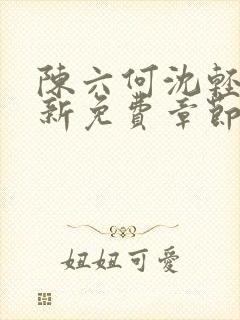 陳六何沈輕
新免費章節
妞妞可愛